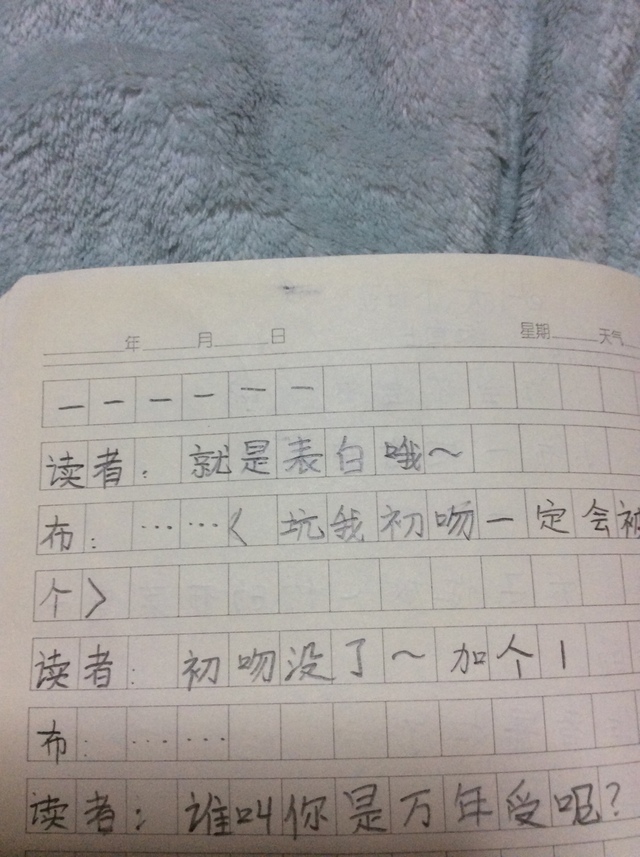 年 月 日 星期 天气
一 一 一 一 一 一
读者：就是表白哦～
布：……< 坑我初吻一定会被
个>
读者：初吻没了～加个1
布：……
读者：谁叫你是万年受呢？